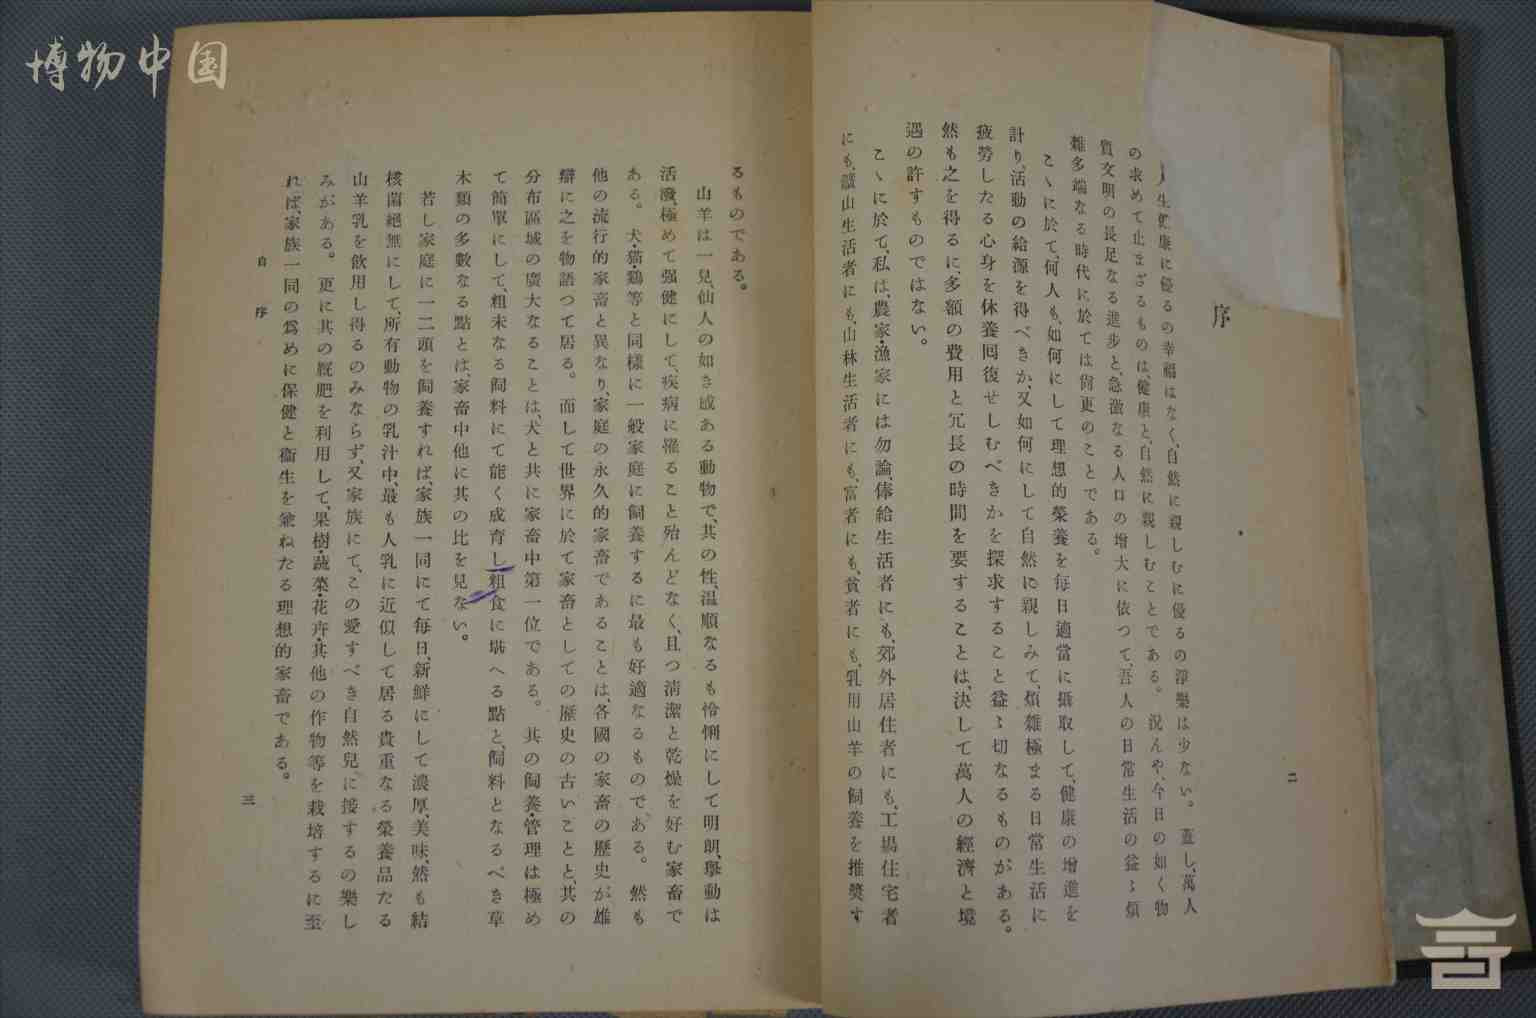 博物中国
序
人生健康に優るの幸福はなく、自然に親しむに優るの淨樂は少ない。蓋し、萬人
の求めて止まざるものは、健康と、自然に親しむことである。況んや、今日の如く物
質文明の長足なる進步と、急激なる人口の增大に依つて、吾人の日常生活の益〻煩
雜多端なる時代に於ては尙更のことである。
こゝに於て、何人も、如何にして理想的榮養を每日適當に攝取して、健康の增進を
計り、活動の給源を得べきか、又如何にして自然に親しみて、煩雜極まる日常生活に
疲勞したる心身を休養囘復せしむべきかを探求すること益〻切なるものがある。
然も之を得るに、多額の費用と冗長の時間を要することは、決して萬人の經濟と境
遇の許すものではない。
こゝに於て、私は、農家・漁家には勿論、俸給生活者にも、郊外居住者にも、工場住宅者
にも、鑛山生活者にも、山林生活者にも、富者にも、貧者にも、乳用山羊の飼養を推奬す
二
るものである。
山羊は一見、仙人の如き感ある動物で、其の性、溫順なるも怜悧にして明朗、擧動は
活潑、極めて强健にして、疾病に罹ること殆んどなく、且つ淸潔と乾燥を好む家畜で
ある。犬・猫・鷄等と同樣に一般家庭に飼養するに最も好適なるものである。然も
他の流行的家畜と異なり、家庭の永久的家畜であることは、各國の家畜の歷史が雄
辯に之を物語つて居る。而して世界に於て家畜としての歷史の古いことと、其の
分布區域の廣大なることは、犬と共に家畜中第一位である。其の飼養・管理は極め
て簡單にして、粗末なる飼料にて能く成育し粗食に堪へる點と、飼料となるべき草
木類の多數なる點とは、家畜中他に其の比を見ない。
若し家庭に一二頭を飼養すれば、家族一同にて每日、新鮮にして濃厚、美味、然も結
核菌絕無にして、所有動物の乳汁中、最も人乳に近似して居る貴重なる榮養品たる
山羊乳を飮用し得るのみならず、又家族にて、この愛すべき自然兒に接するの樂し
みがある。更に其の厩肥を利用して、果樹・蔬菜・花卉・其他の作物等を栽培するに至
れば、家族一同の爲めに保健と衞生を兼ねたる理想的家畜である。
自序
三